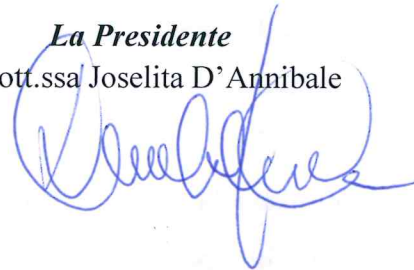 La Presidente
ott.ssa Joselita D'Annibale